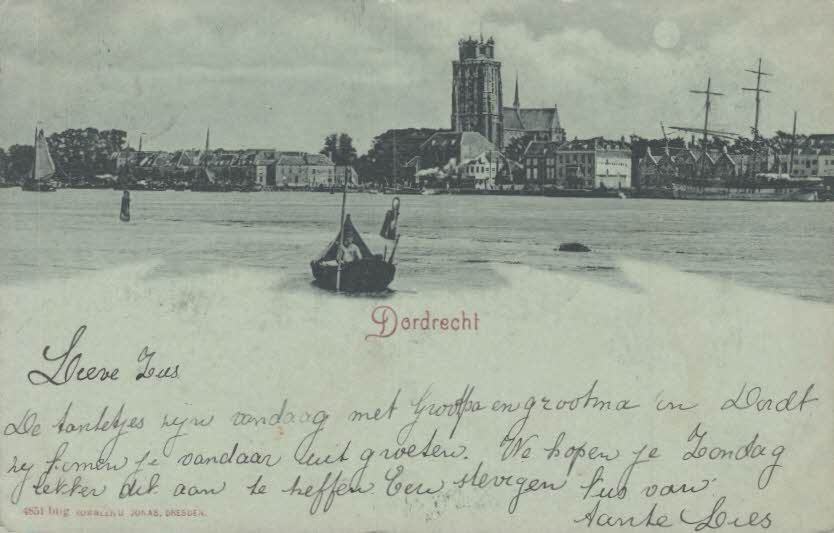 Dordrecht
Lieve Zus
De tantetjes zijn vandaag met Grootpa en grootma in Dordt
zij komen je vandaar uit groeten. We hopen je Zondag
lekker dik aan te treffen. Een stevigen kus van
tante Lies
4851 bug ROMMLER & JONAS, DRESDEN.